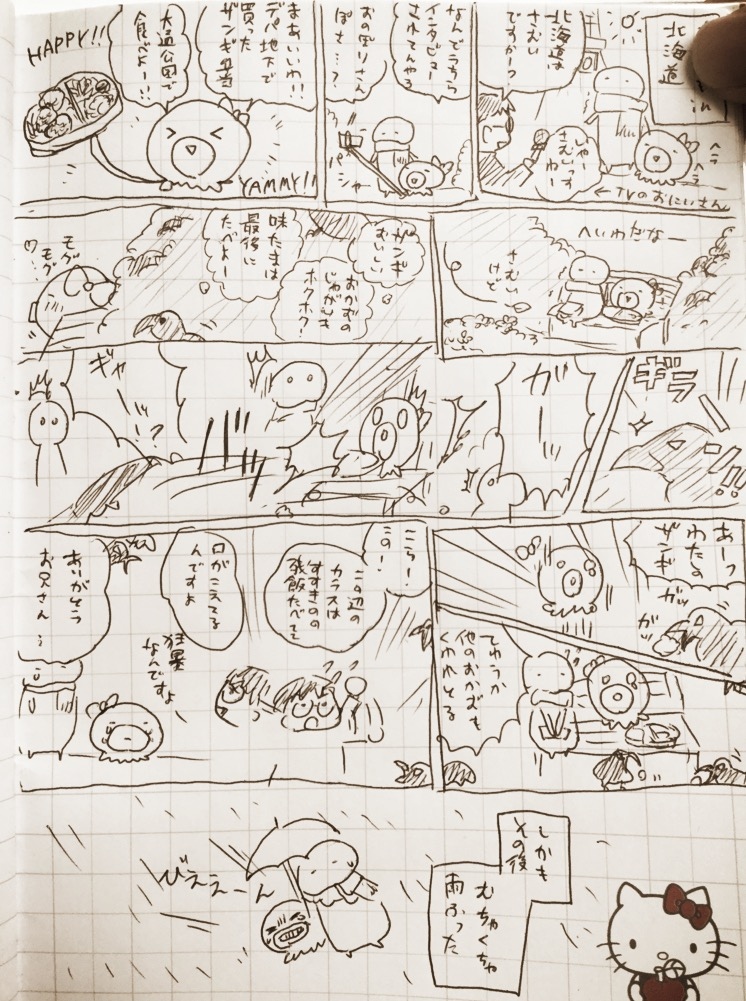 北海道
北海道は
さむい
ですかーっ
さむいっす
わー
ヘラ
ヘラ
←TVのおにいさん
なんでうちら
インタビュー
されてんやろ
おのぼりさん
ぽさ…?
パシャ
まあいいわ!!
デパ地下で
買った
ザンギ弁当
大通公園で
食べよー!!
HAPPY!!
YAMMY!!
へいわだなー
さむい
けど
ザンギ
おいしい
おかずの
じゃがいも
ホクホク!
味たまは
最後に
たべよー
モグ
モグ
ギラ
!!
ガーッ
ギャー
!?
あーっ
わたしの
ザンギ
ガッ
ガッ
てゆうか
他のおかずも
くわれとる
こらー!
この!
この辺の
カラスは
すすきのの
残飯たべてて
口がこえてる
んですよ
狂暴
なんですよ
ありがとう
お兄さん…
しかも
その後
むちゃくちゃ
雨ふった
びええーん